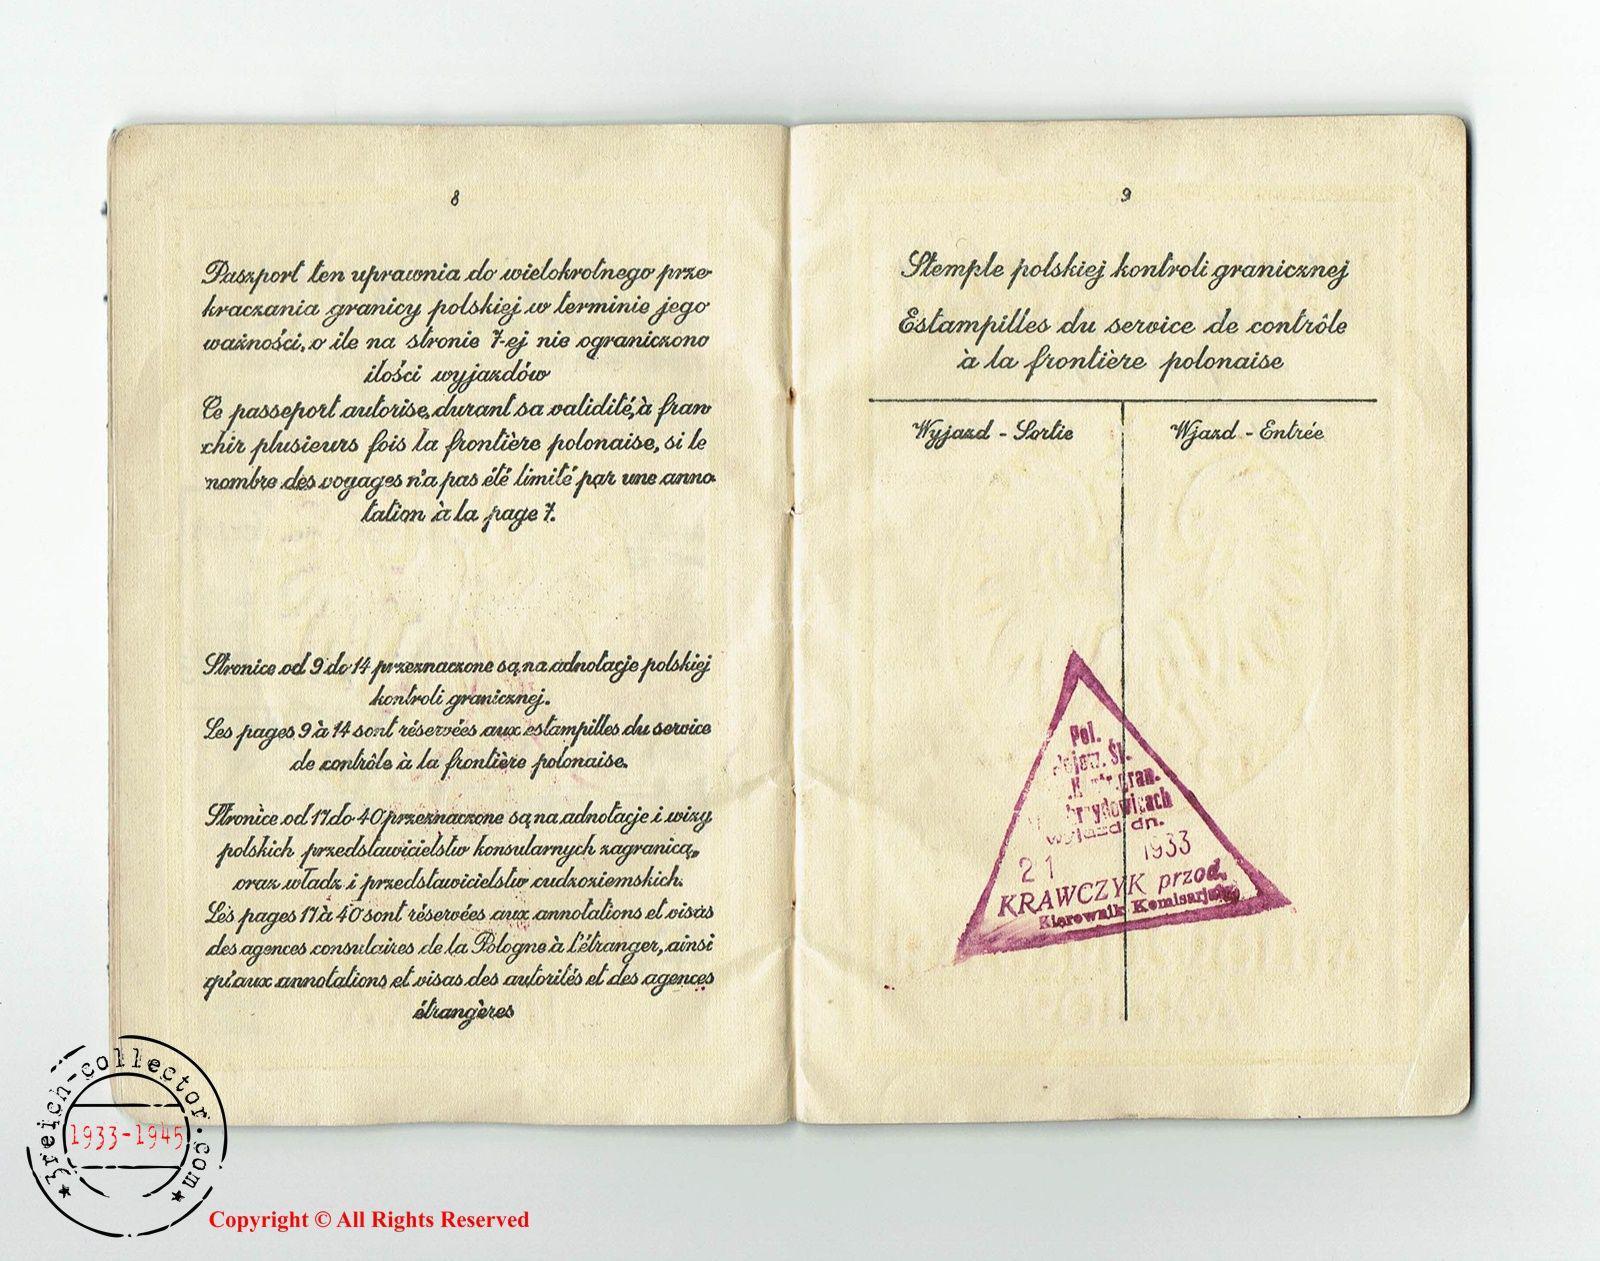 8
Paszport ten uprawnia do wielokrotnego prze-
kraczania granicy polskiej w terminie jego
ważności, o ile na stronie 7-ej nie ograniczono
ilości wyjazdów
Ce passeport autorise, durant sa validité, à fran-
chir plusieurs fois la frontière polonaise, si le
nombre des voyages n'a pas été limité par une anno-
tation à la page 7.
Stronice od 9 do 14 przeznaczone są na adnotacje polskiej
kontroli granicznej.
Les pages 9 à 14 sont réservées aux estampilles du service
de contrôle à la frontière polonaise.
Stronice od 17 do 40 przeznaczone są na adnotacje i wizy
polskich przedstawicielstw konsularnych zagranicą,
oraz władz i przedstawicielstw cudzoziemskich.
Les pages 17 à 40 sont réservées aux annotations et visas
des agences consulaires de la Pologne à l'étranger, ainsi
qu'aux annotations et visas des autorités et des agences
étrangères
9
Stemple polskiej kontroli granicznej
Estampilles du service de contrôle
à la frontière polonaise
Wyjazd - Sortie
Wjazd - Entrée
Pol.
Śl.
gran.
wyjazd dn.
21 1933
KRAWCZYK przod.
Kierownik Komisarjatu
3reich-collector.com
1933-1945
Copyright © All Rights Reserved